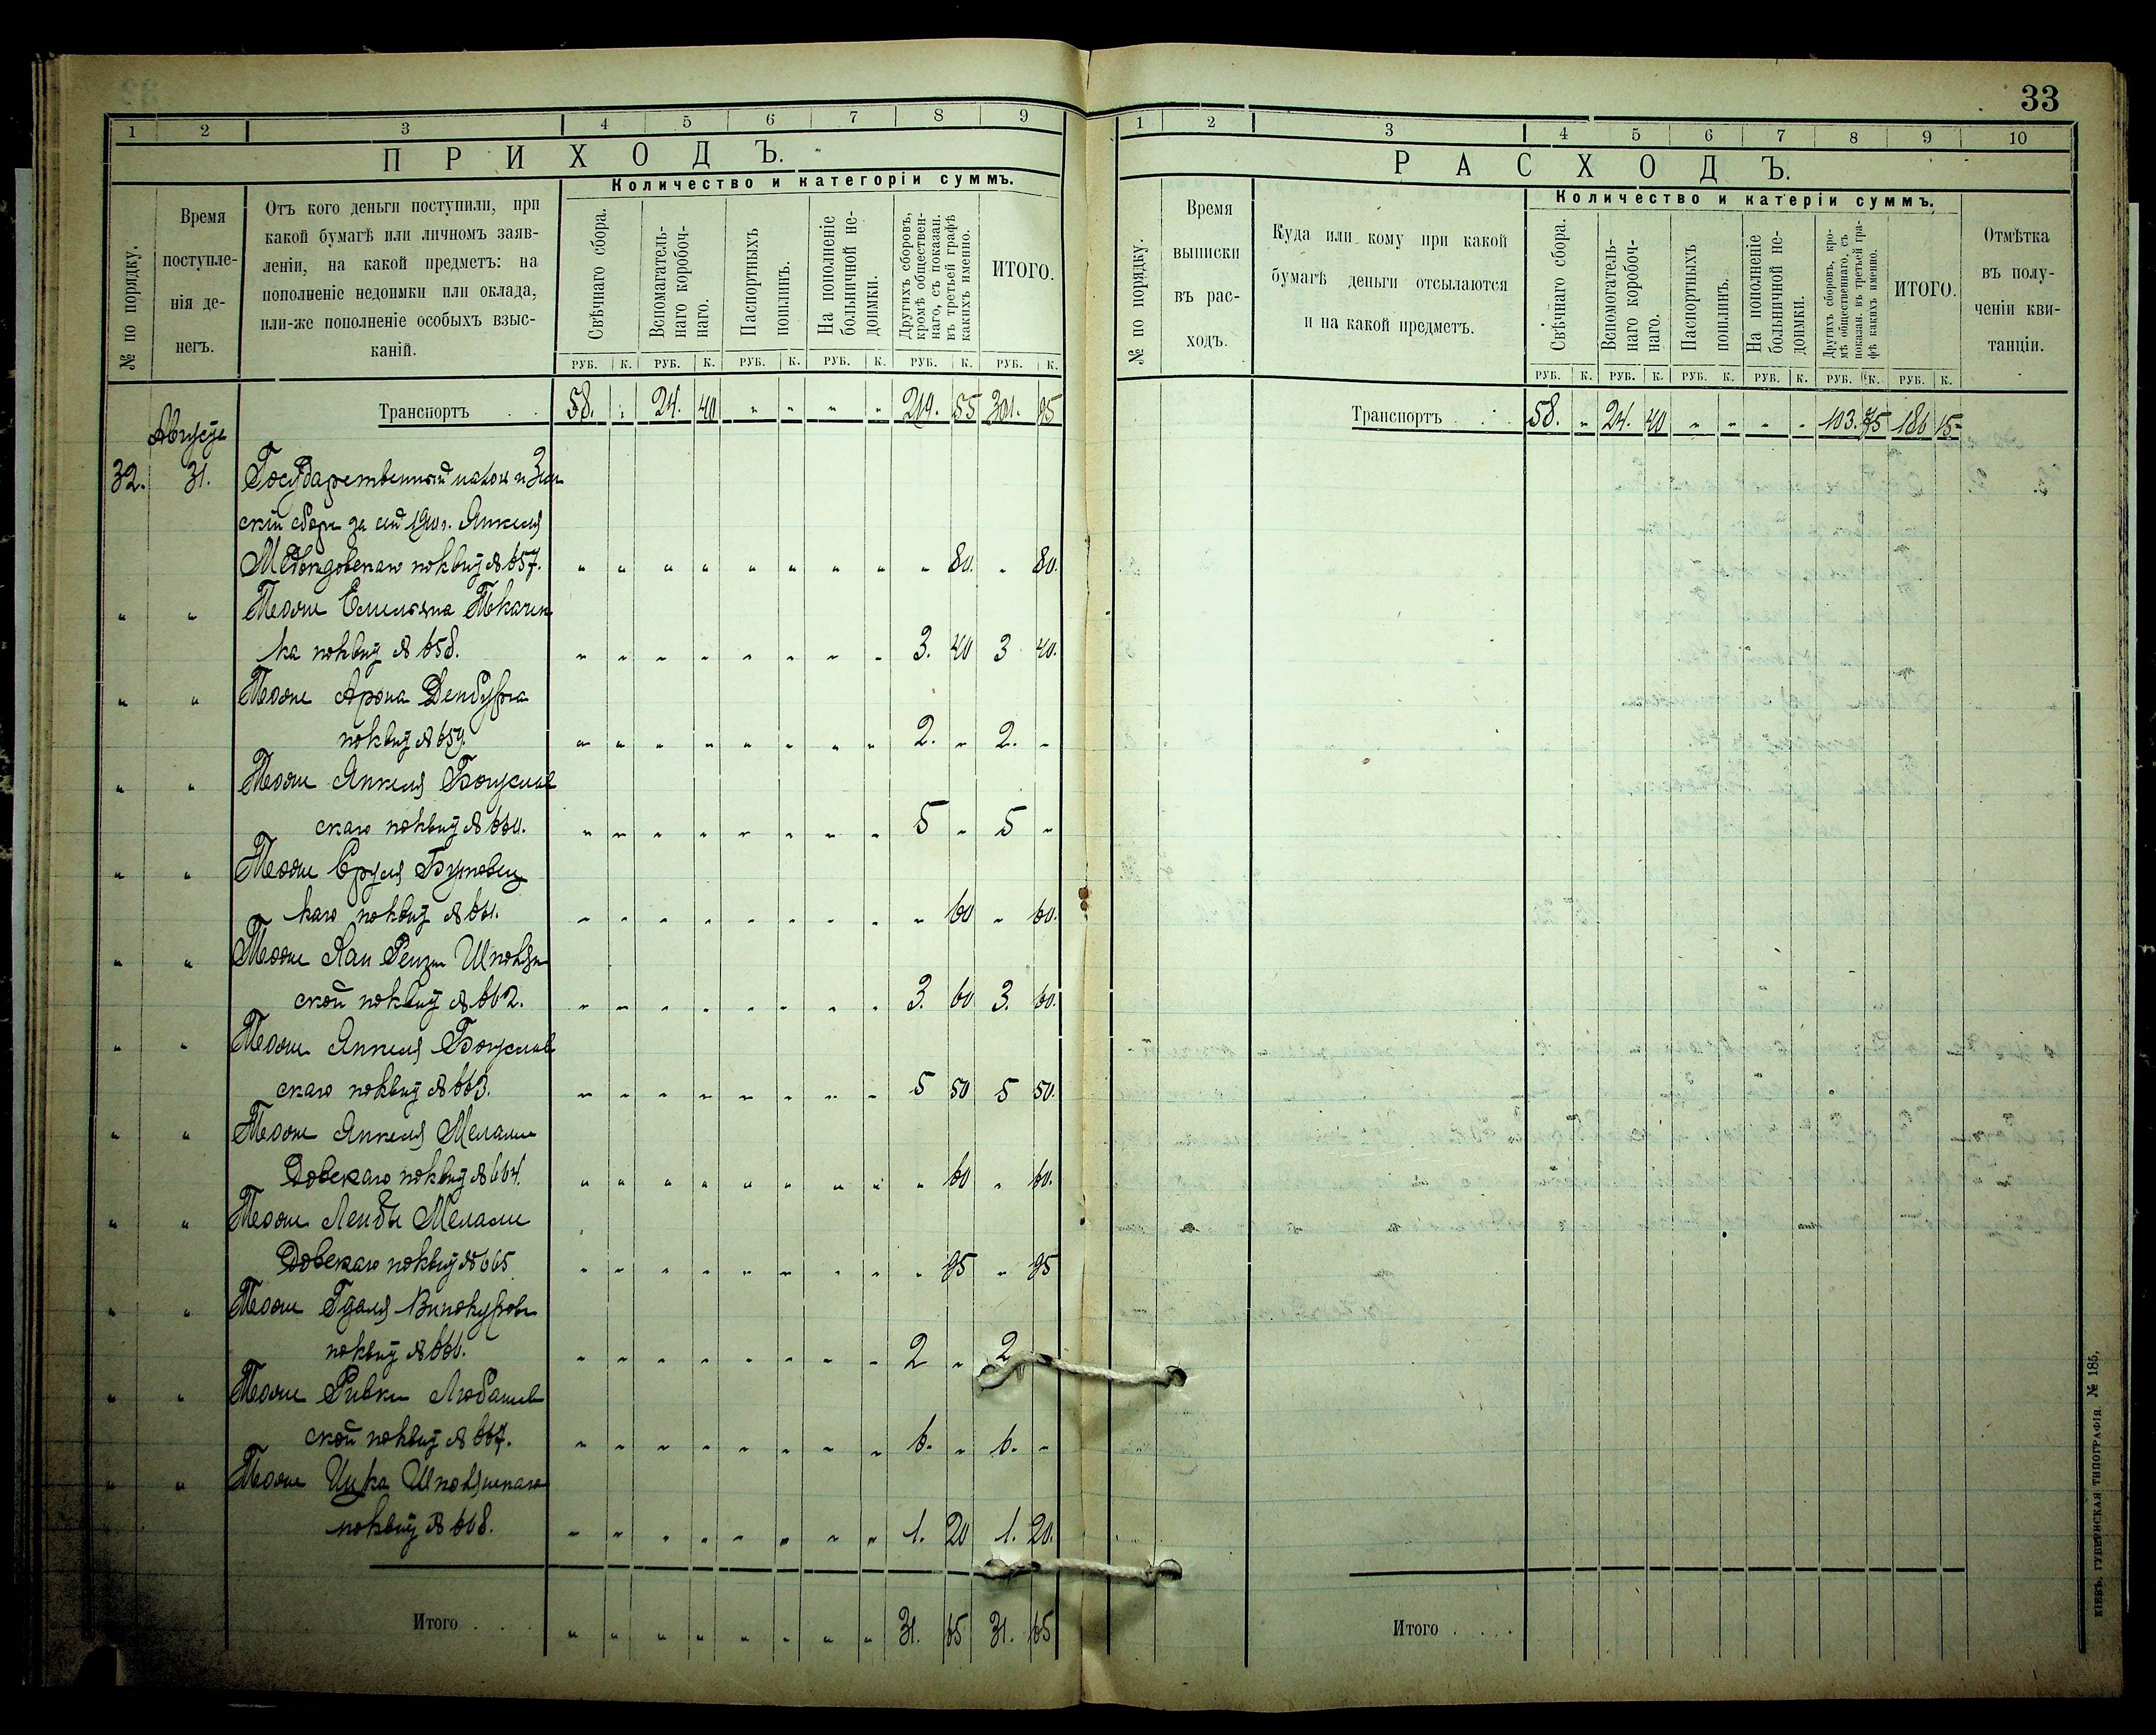 33
1 2 3 4 5 6 7 8 9
ПРИХОДЪ.
№ по порядку.
Время поступле-
нія де-
негъ.
Отъ кого деньги поступили, при
какой бумагѣ или личномъ заяв-
леніи, на какой предметъ: на
пополненіе недоимки или оклада,
или-же пополненіе особыхъ взыс-
каній.
Количество и категоріи суммъ.
Свѣчнаго сбора.
Вспомогатель-
наго коробоч-
наго.
Паспортныхъ
пошлинъ.
На пополненіе
больничной не-
доимки.
Другихъ сборовъ,
кромѣ обществен-
наго, съ показан.
въ третьей графѣ
какихъ именно.
ИТОГО.
РУБ. К. РУБ. К. РУБ. К. РУБ. К. РУБ. К. РУБ. К.
Транспортъ . . 58. „ 24. 40 „ „ „ „ 219. 55 301. 95
Августа
32. 31. Государственный налог и Зем
скій сборъ за сей 1910 г. Янкеля
поквит № 657. „ „ „ „ „ „ „ „ „ 80. „ 80.
„ „ Тоже Ткачен
ка поквит № 658. „ „ „ „ „ „ „ „ 3. 40 3 40.
„ „ Тоже Арона
поквит № 659. „ „ „ „ „ „ „ „ 2. „ 2. „
„ „ Тоже Янкеля Богуслав
скаго поквит № 660. „ „ „ „ „ „ „ „ 5 „ 5 „
„ „ Тоже Сруля
каго поквит № 661. „ „ „ „ „ „ „ „ „ 60 „ 60.
„ „ Тоже Шполян
ской поквит № 662. „ „ „ „ „ „ „ „ 3. 60 3. 60.
„ „ Тоже Янкеля Богуслав
скаго поквит № 663. „ „ „ „ „ „ „ „ 5 50 5 50.
„ „ Тоже Янкеля Мелами
довскаго поквит № 664. „ „ „ „ „ „ „ „ „ 60 „ 60.
„ „ Тоже Лейбы Мелами
довскаго поквит № 665 „ „ „ „ „ „ „ „ „ 95 „ 95
„ „ Тоже Винокура
поквит № 666. „ „ „ „ „ „ „ „ 2 „ 2
„ „ Тоже Ривки Любашев
ской поквит № 667. „ „ „ „ „ „ „ „ 6. „ 6. „
„ „ Тоже Шполянскаго
поквит № 668. „ „ „ „ „ „ „ „ 1. 20 1. 20.
Итого . . . „ „ „ „ „ „ „ „ 31. 65 31. 65
1 2 3 4 5 6 7 8 9 10
РАСХОДЪ.
№ по порядку.
Время
выписки
въ рас-
ходъ.
Куда или кому при какой
бумагѣ деньги отсылаются
и на какой предметъ.
Количество и катеріи суммъ.
Свѣчнаго сбора.
Вспомогатель-
наго коробоч-
наго.
Паспортныхъ
пошлинъ.
На пополненіе
больничной не-
доимки.
Другихъ сборовъ, кро-
мѣ общественнаго, съ
показан. въ третьей гра-
фѣ какихъ именно.
ИТОГО.
Отмѣтка
въ полу-
ченіи кви-
танціи.
РУБ. К. РУБ. К. РУБ. К. РУБ. К. РУБ. К. РУБ. К.
Транспортъ . . 58. „ 24. 40 „ „ „ „ 103. 75 186 15
Итого . . .
КІЕВЪ. ГУБЕРНСКАЯ ТИПОГРАФІЯ. № 185.